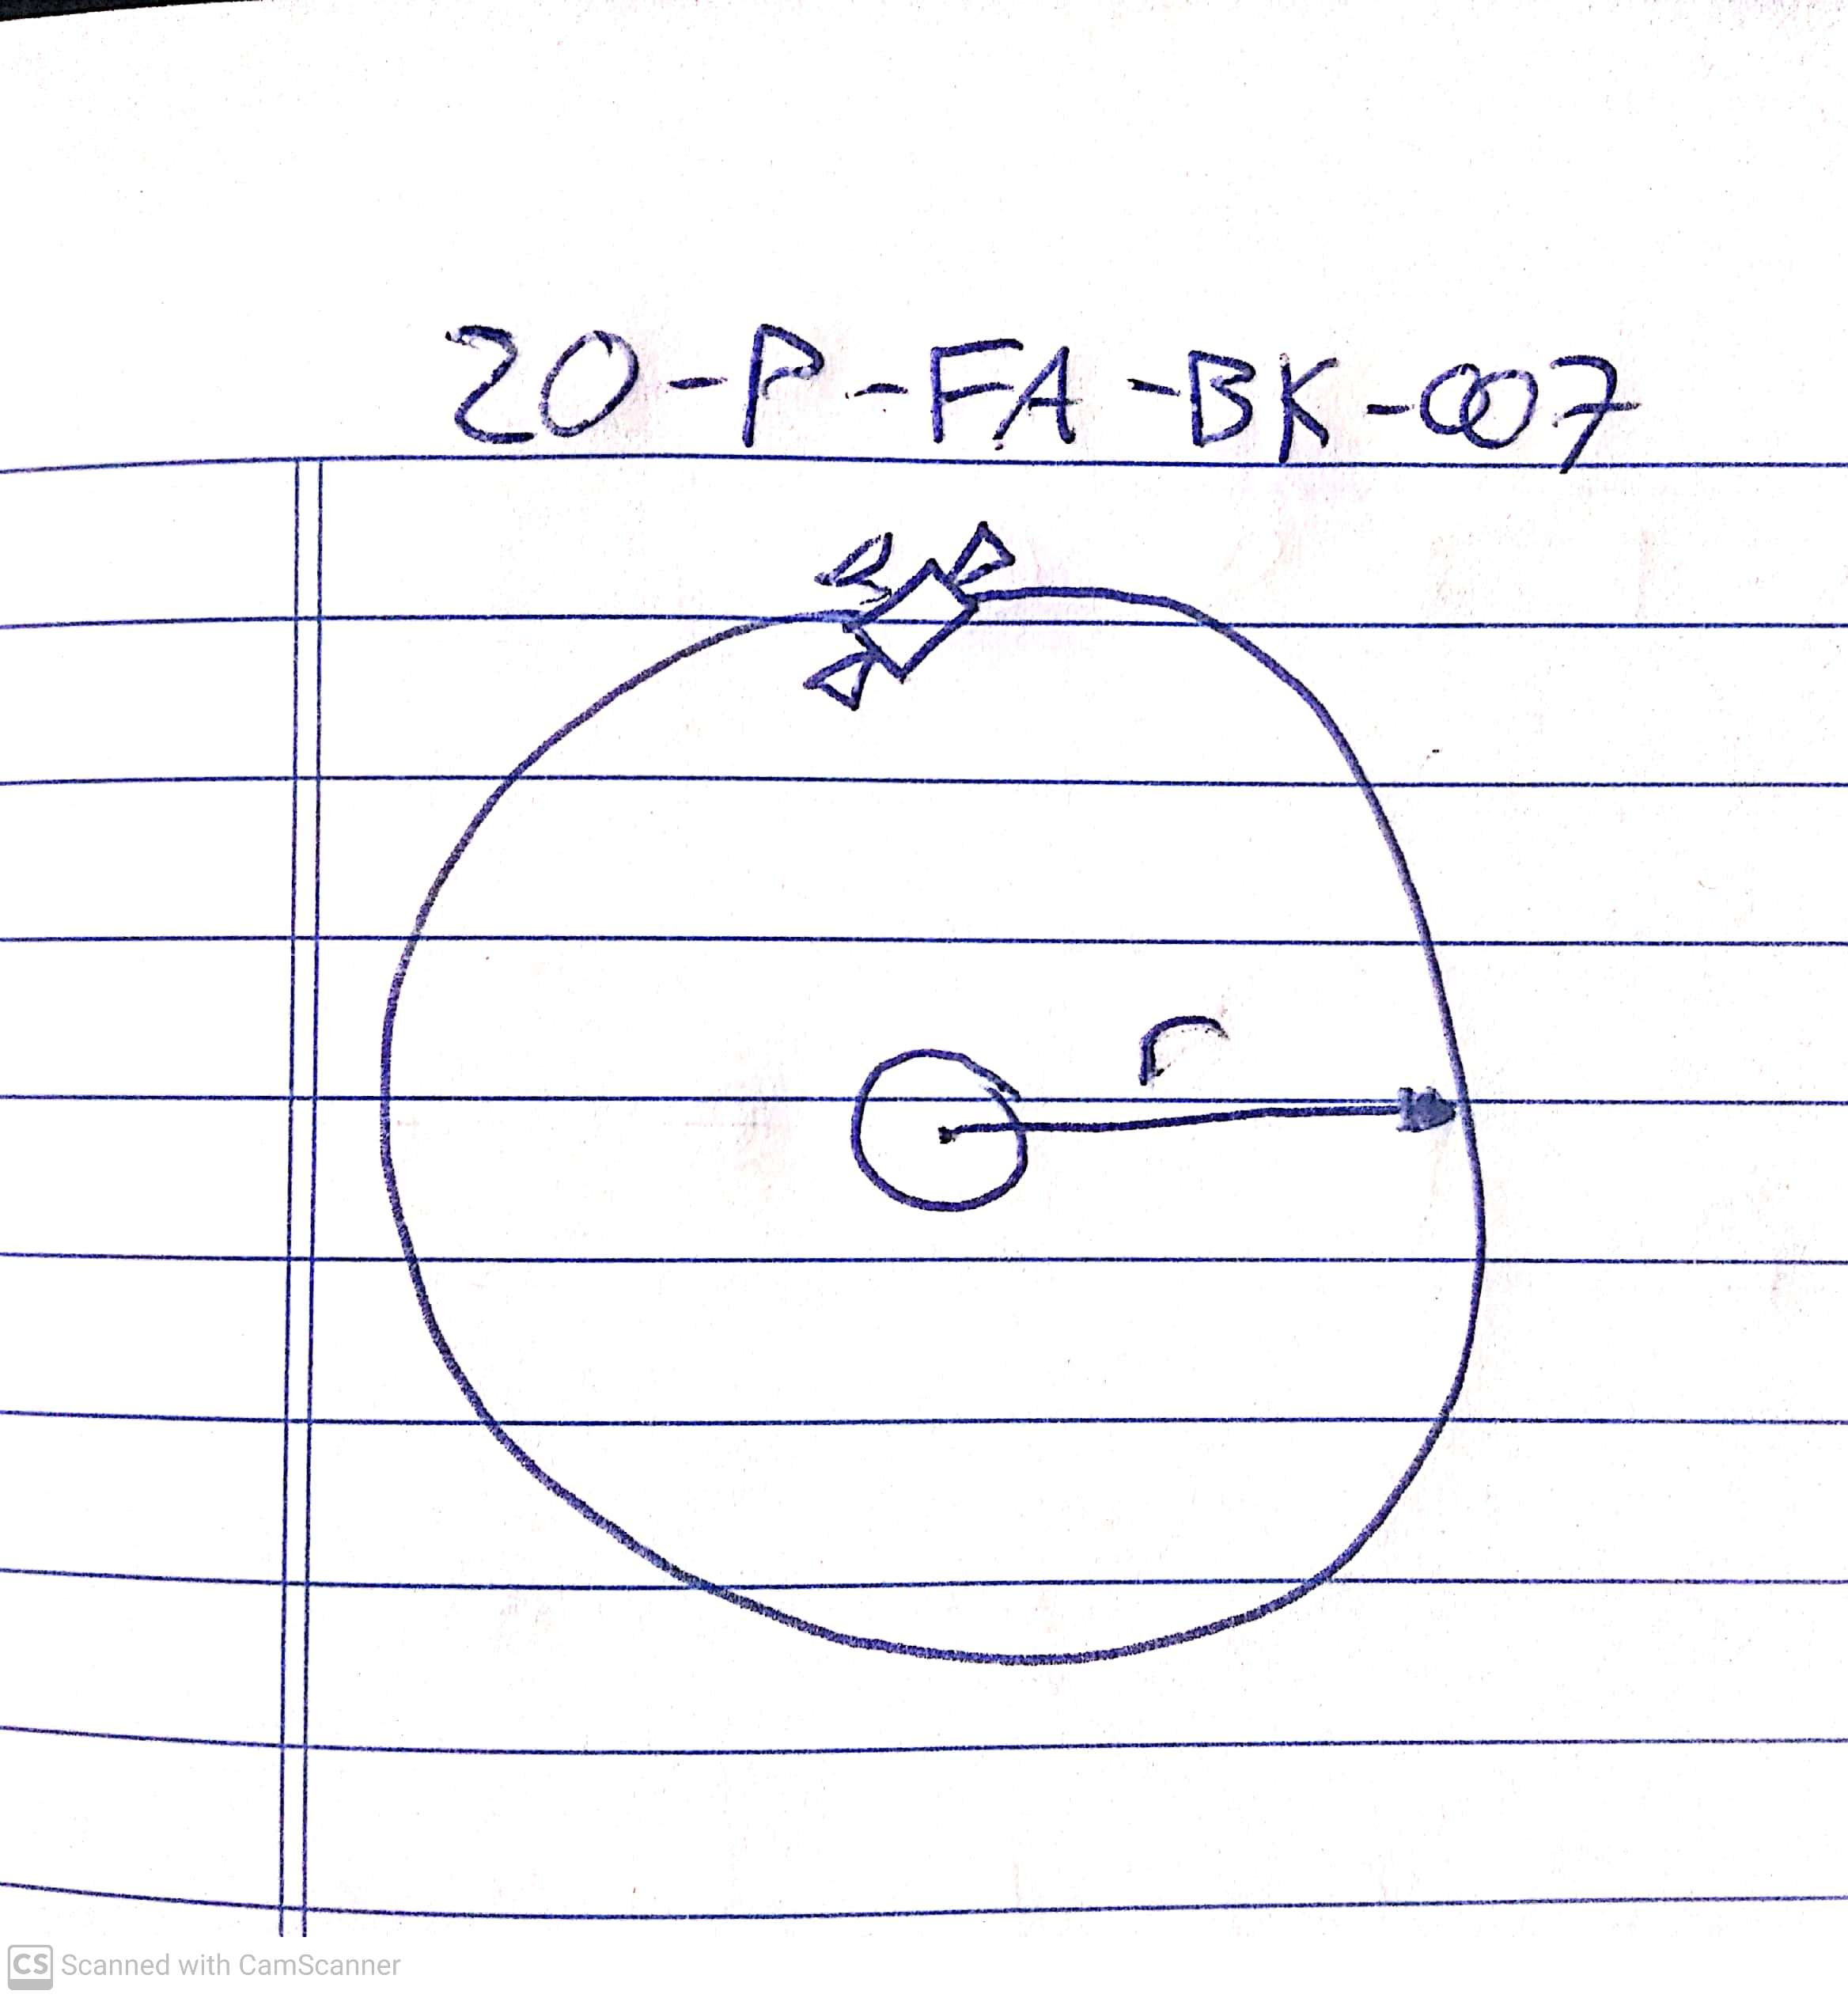 20-P-FA-BK-007
r
CS Scanned with CamScanner